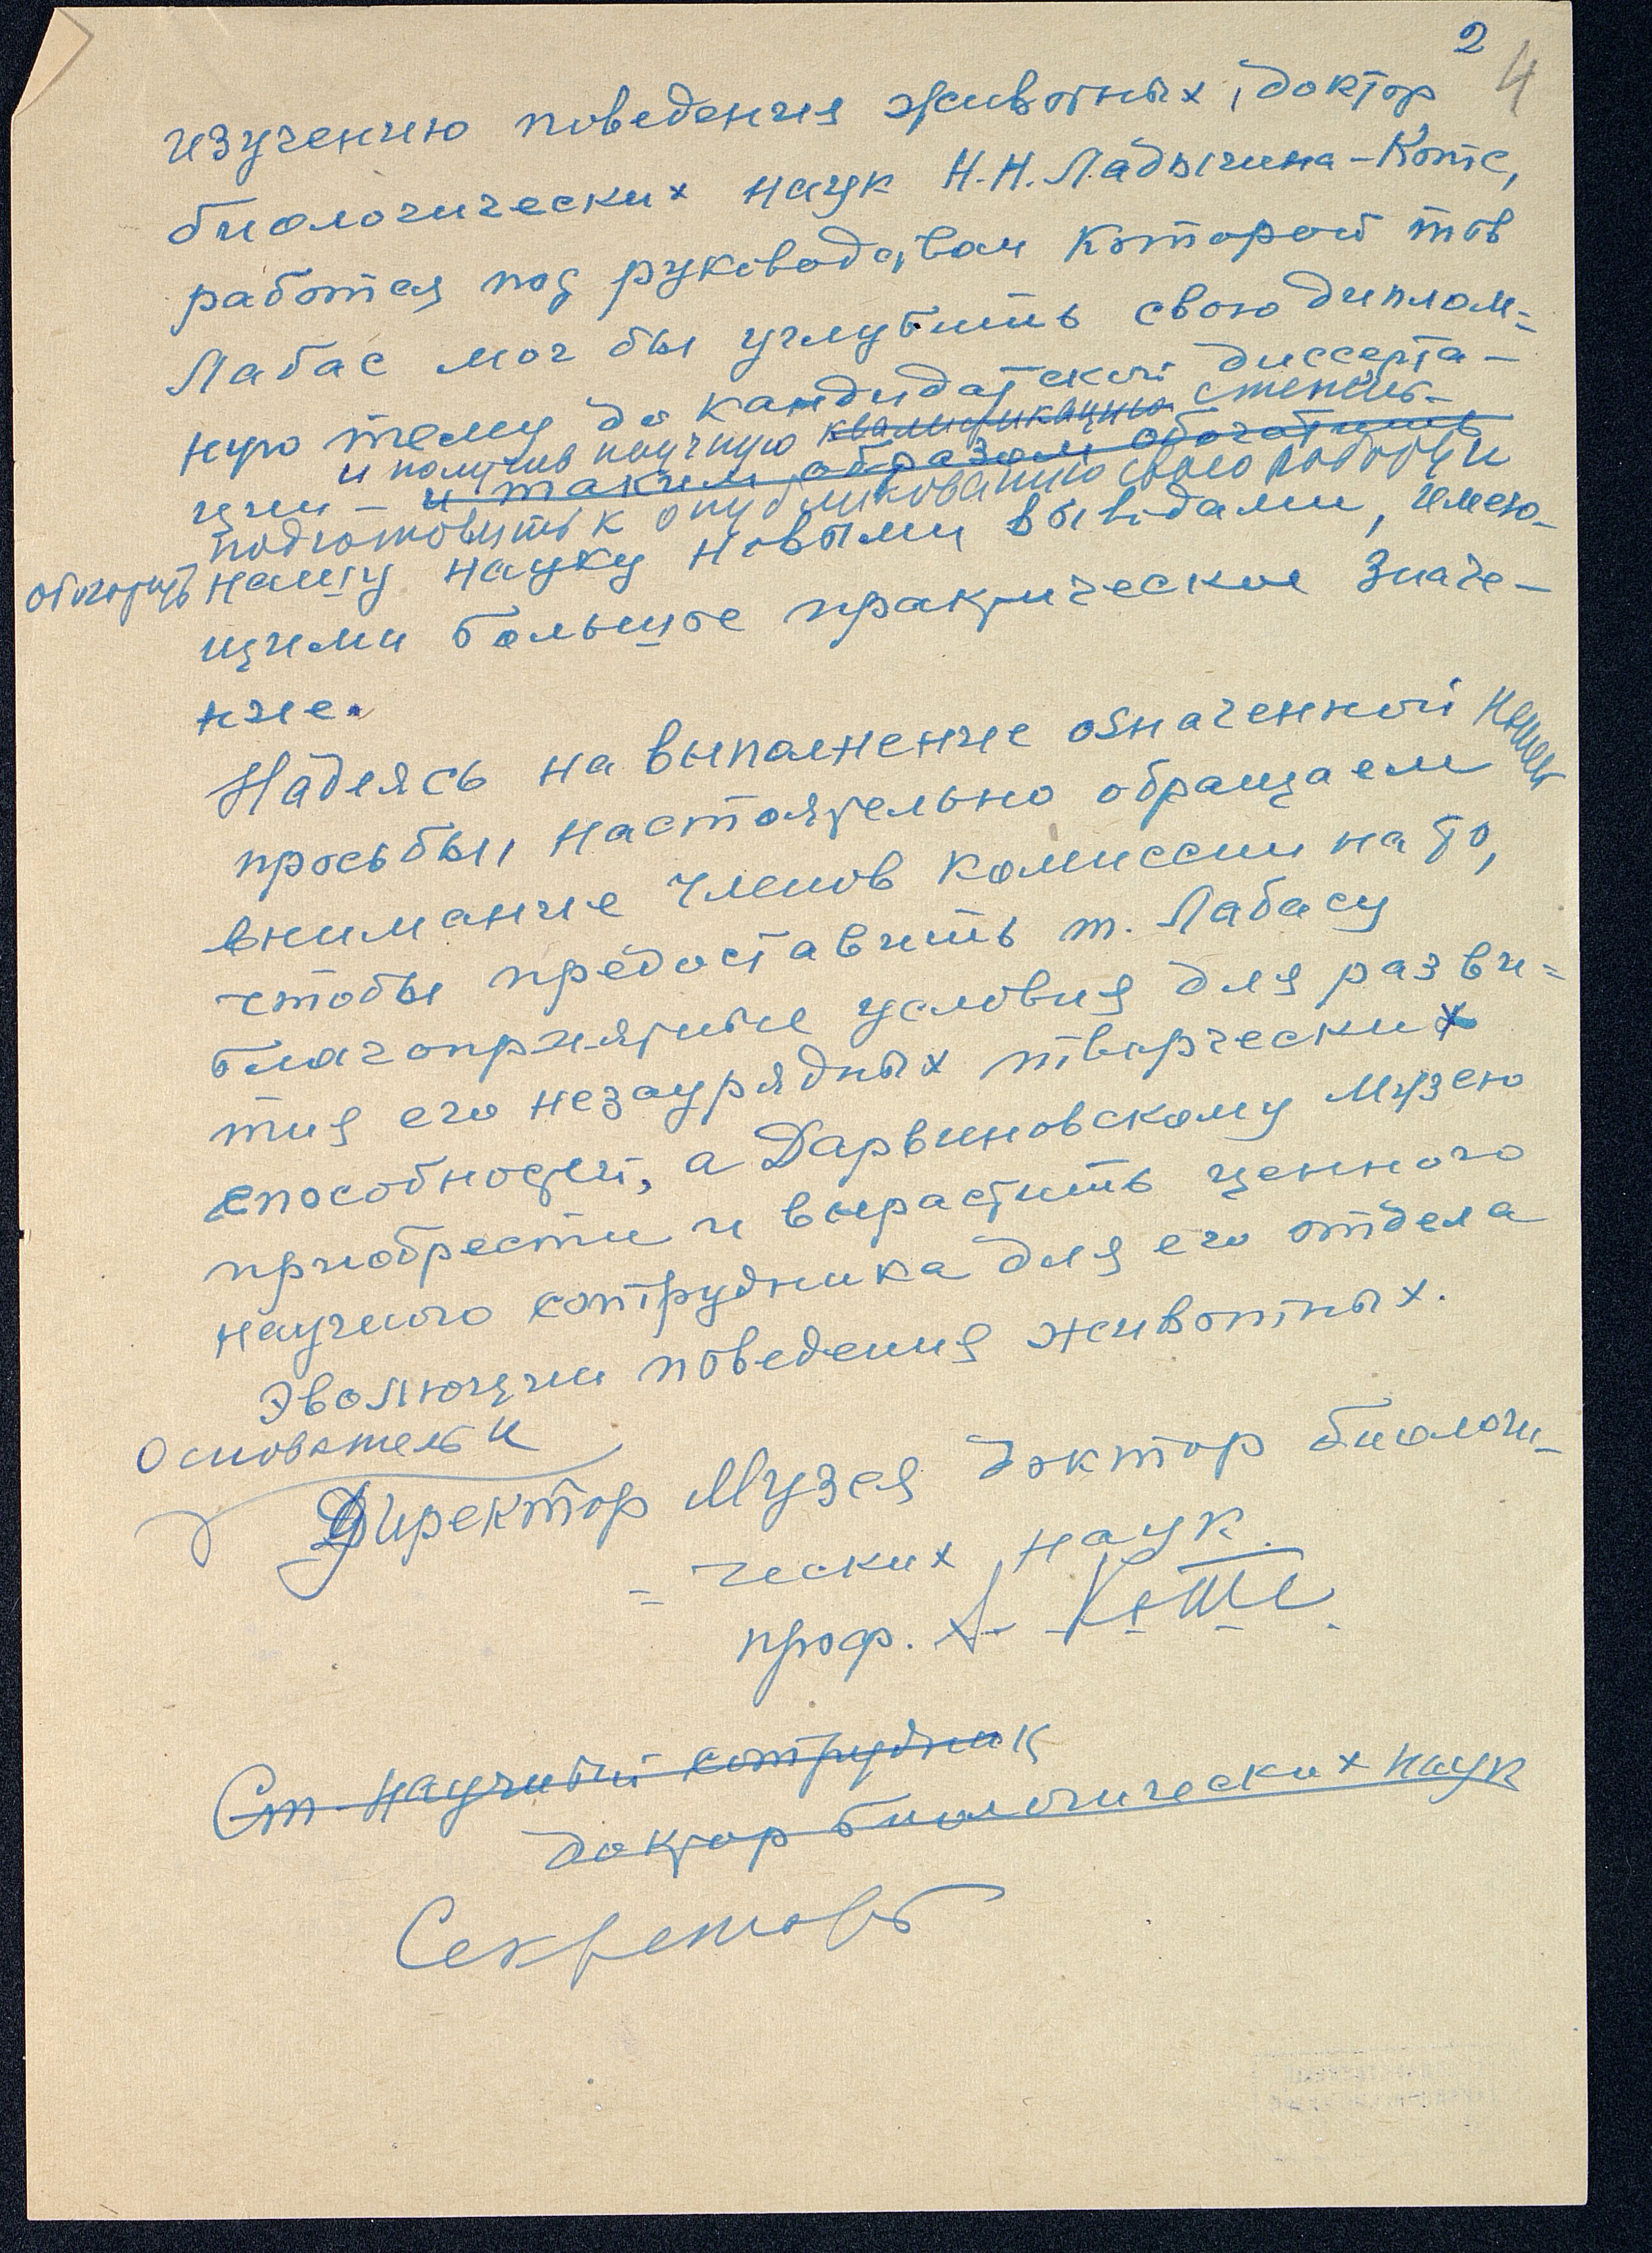 2
4
изучению поведения животных, доктор
биологических наук Н.Н. Ладыгина-Котс,
работая под руководством которой тов
Лабас мог бы углубить свою диплом=
ную тему до кандидатской диссерта-
и получив научную квалификацию степень-
ции - и таким образом обогатить
подготовить к опубликованию свою работу и
обогатить нашу науку новыми выводами, имею-
щими большое практическое значе-
ние.
Надеясь на выполнение означенной нашей
просьбы, настоятельно обращаем
внимание членов комиссии на то,
чтобы предоставить т. Лабасу
благоприятные условия для разви=
тия его незаурядных творческих
способностей, а Дарвиновскому Музею
приобрести и вырастить ценного
научного сотрудника для его отдела
Эволюции поведения животных.
Основатель и
Директор Музея доктор биологи-
= ческих наук.
проф. А. Котс
Ст. научный сотрудник
доктор биологических наук
Секретарь